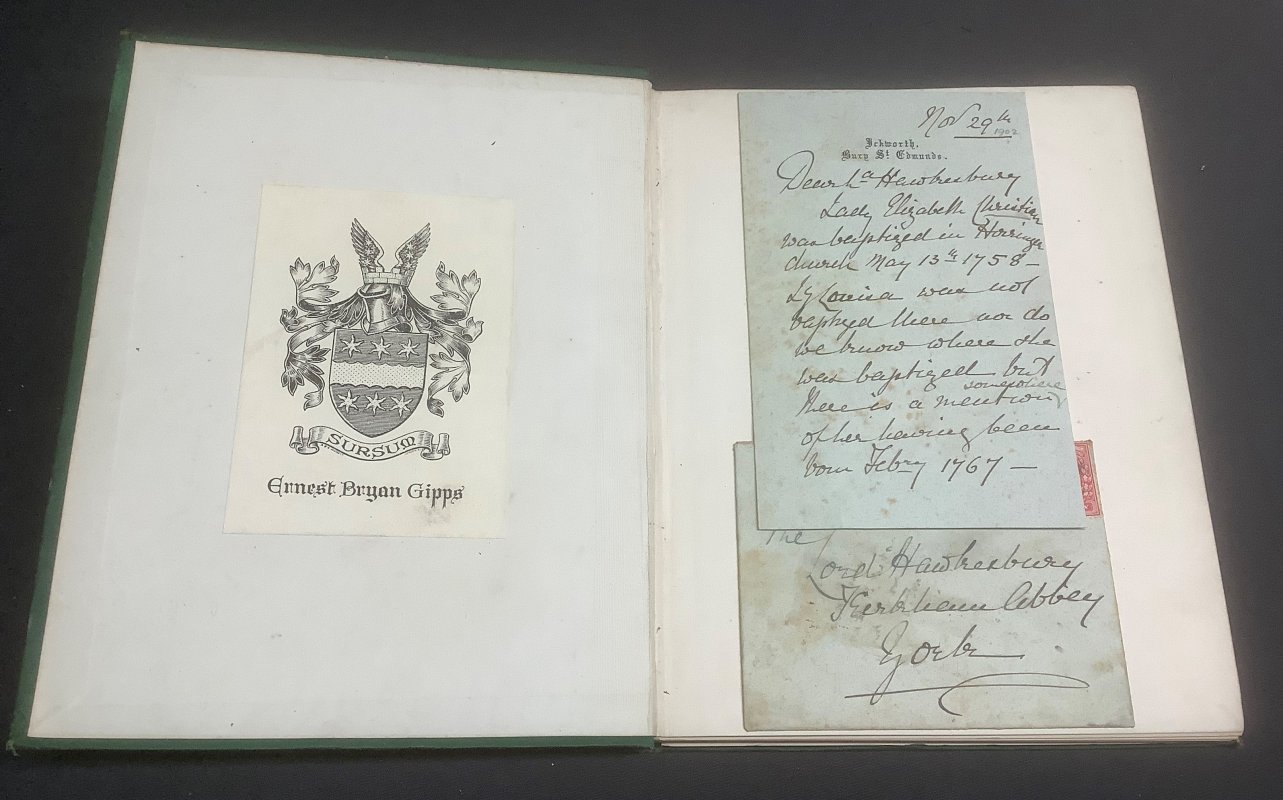 SURSUM
Ernest Bryan Gipps
Nov 29th
1902
Ickworth,
Bury St Edmunds.
Dear Ld Hawkesbury
Lady Elizabeth Christian
was baptized in Horringer
church May 13th 1758 –
Ly Louisa was not
baptized there nor do
we know where she
was baptized but
somewhere
there is a mention
of her having been
born Febry 1767 –
The
Lord Hawkesbury
Kirkham Abbey
York